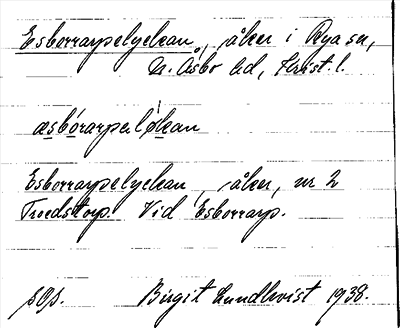 Esborrarpelyckan, åker i Rya sn,
N. Åsbo hd, Krist. l.
æsbórarpαløkan
Esborrarpelyckan, åker, nr 2
Troedstorp. Vid Esborrarp.
sgs. Birgit Lundkvist 1938.